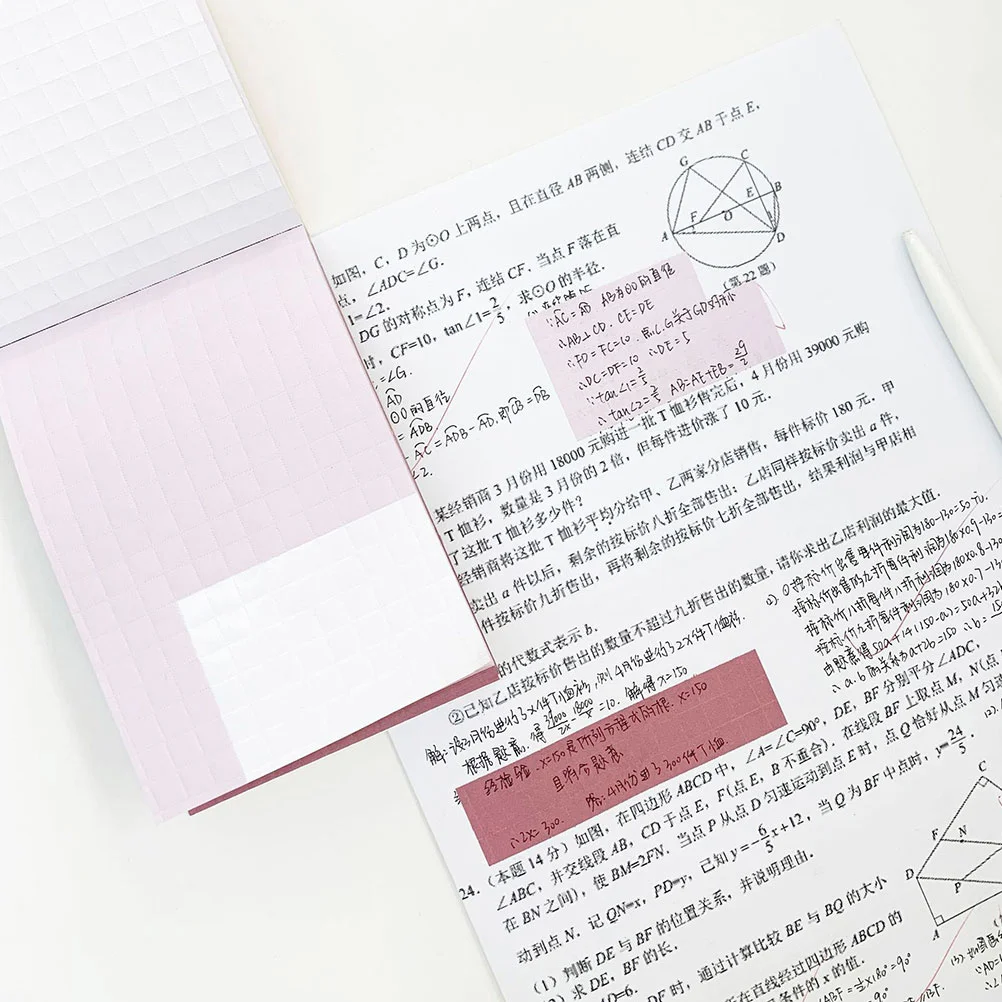 如图，C，D 为⊙O 上两点，且在直径 AB 两侧，连结 CD 交 AB 于点 E，
点，∠ADC=∠G.
1=∠2.
DG 的对称点为 F，连结 CF. 当点 F 落在直
时，CF=10，tan∠1=2/5，求⊙O 的半径.
G
C
E
B
F
O
A
D
(第 22 题)
=∠G.
AD
⊙O的直径
=ADB
-AC=ADB-AD.即CB=DB
∠2.
∵AC=AD AB为⊙O的直径
∴AB⊥CD. CE=DE
∴FD=FC=10. 点C.G关于GD对称
∴DC=DF=10 ∴DE=5
∵tan∠1=2/5
∴tan∠2=2/5 AB=AE+EB=29/2
某经销商 3 月份用 18000 元购进一批 T 恤衫售完后，4 月份用 39000 元购
T 恤衫，数量是 3 月份的 2 倍，但每件进价涨了 10 元.
了这批 T 恤衫多少件？
经销商将这批 T 恤衫平均分给甲、乙两家分店销售，每件标价 180 元. 甲
卖出 a 件以后，剩余的按标价八折全部售出；乙店同样按标价卖出 a 件，
件按标价九折售出，再将剩余的按标价七折全部售出，结果利润与甲店相
的代数式表示 b.
②已知乙店按标价售出的数量不超过九折售出的数量，请你求出乙店利润的最大值.
解：设3月份进了x件T恤衫，则4月份进的了2x件T恤衫.
根据题意，得39000/2x-18000/x=10. 解得x=150
经检验，x=150是所列方程的根. x=150
且符合题意
∴2x=300. 答：4月份进了300件T恤.
2) ①按标价出售每件利润为180-130=50元.
按标价出售的九折每件利润为180×0.9-130=
按标价八折每件利润为180×0.8-130
按标价七折每件利润为180×0.7-13
由题意得50a+14(150-a)=50a+32b
∴a.b的关系为a+2b=150 ∴b=
24.（本题 14 分）如图，在四边形 ABCD 中，∠A=∠C=90°，DE，BF 分别平分∠ADC，
∠ABC，并交线段 AB，CD 于点 E，F(点 E，B 不重合). 在线段 BF 上取点 M，N(点
在 BN 之间)，使 BM=2FN. 当点 P 从点 D 匀速运动到点 E 时，点 Q 恰好从点 M 匀速
动到点 N. 记 QN=x，PD=y，已知 y=-6/5x+12，当 Q 为 BF 中点时，y=24/5.
(1) 判断 DE 与 BF 的位置关系，并说明理由.
求 DE，BF 的长.
AD=6.
DF 时，通过计算比较 BE 与 BQ 的大小
所在直线经过四边形 ABCD 的
条件的 x 的值.
C
F
N
D
P
A
ABF=½×180°=90°
=90°
BF.